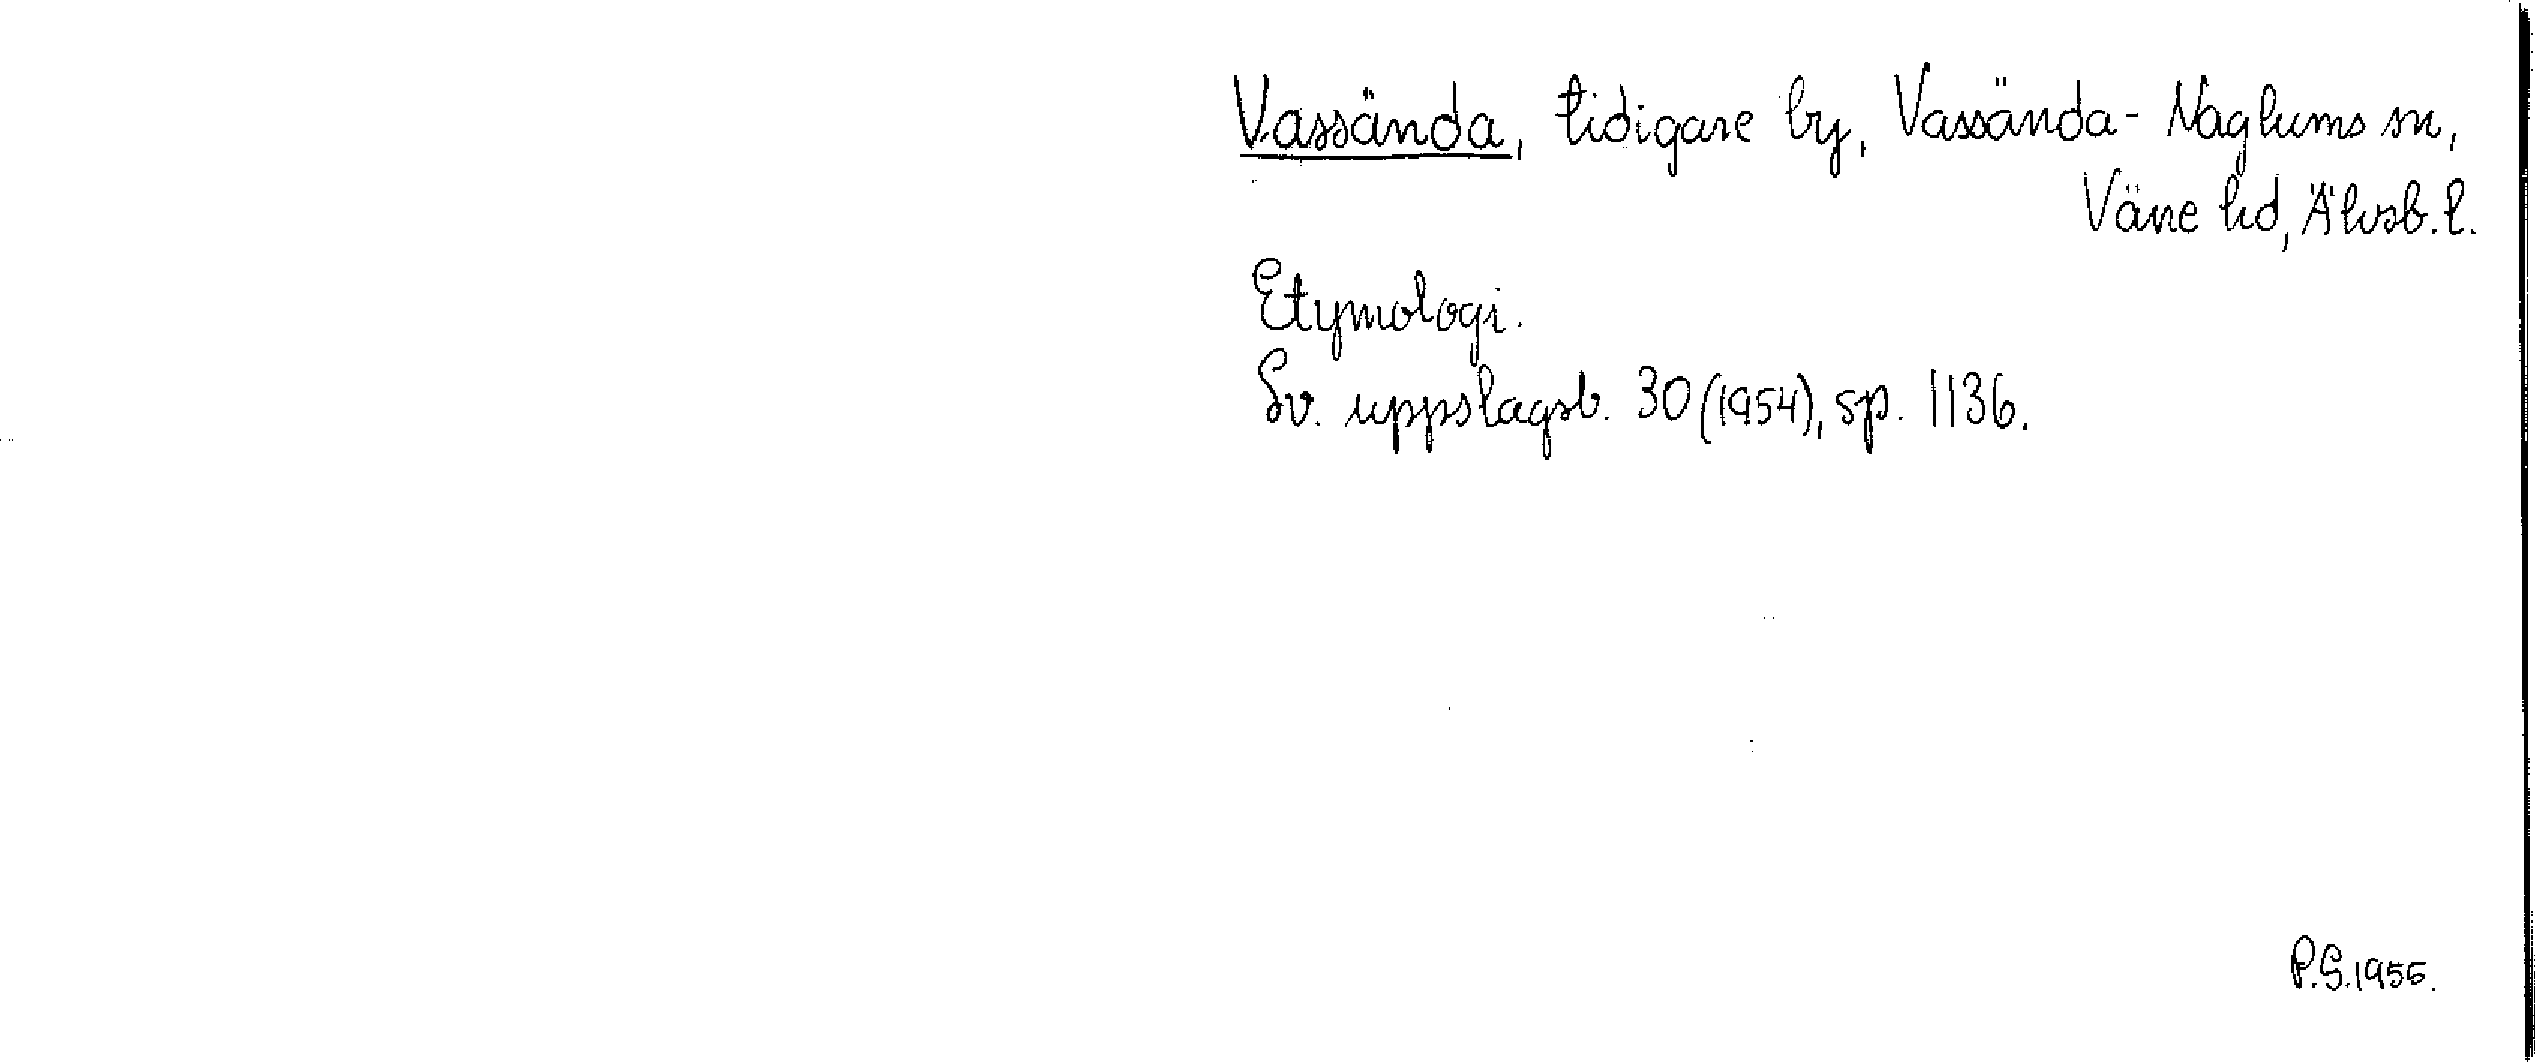 Vassända, tidigare by, Vassända-Naglums sn,
Väne hd, Älvsb. l.
Etymologi.
Sv. uppslagsb. 30 (1954), sp. 1136.
P.S. 1956.